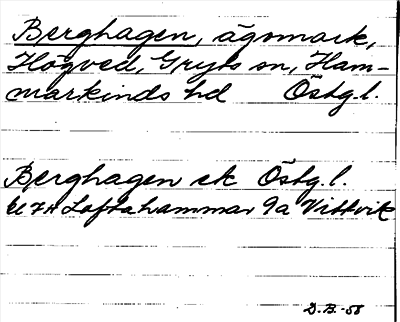 Berghagen, ägomark,
Högved, Gryts sn, Ham-
markinds hd Östg.l.
Berghagen ek Östg.l.
Loftahammar 9a Vittvik
D.B.-58